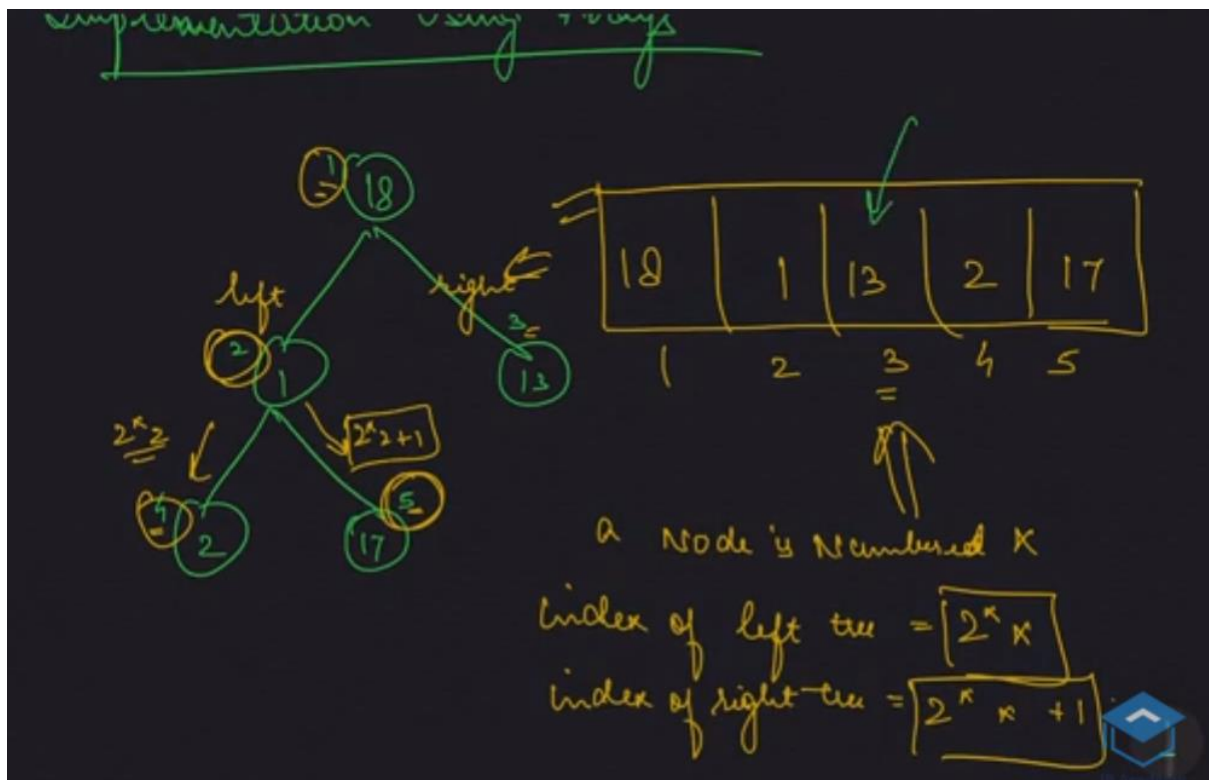 Implementation Using Arrays
1 18
left right
2 1 3 13
2*2 2*2+1
4 2 5 17
18 1 13 2 17
1 2 3 4 5
a Node is Numbered x
index of left tree = 2* x
index of right tree = 2* x +1